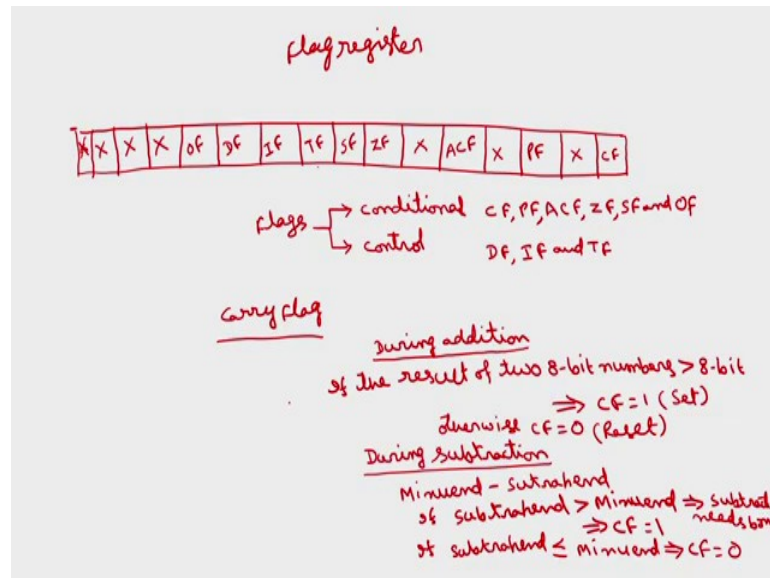 Flag register
X X X X OF DF IF TF SF ZF X ACF X PF X CF
Flags → conditional CF, PF, ACF, ZF, SF and OF
→ control DF, IF and TF
Carry flag
During addition
If the result of two 8-bit numbers > 8-bit
⇒ CF = 1 (Set)
Otherwise CF = 0 (Reset)
During subtraction
Minuend - sutrahend
If subtrahend > Minuend ⇒ subtrac
needs bor
⇒ CF = 1
If subtrahend ≤ minuend ⇒ CF = 0